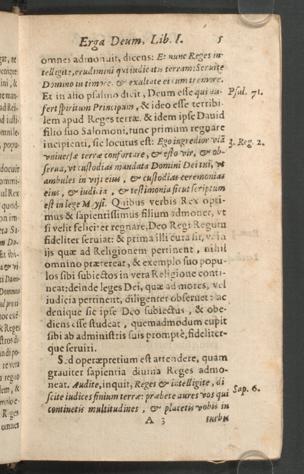 Erga Deum. Lib. I. 5
omnes admonuit, dicens: Et nunc Reges in-
telligite, erudimini qui iudicatis terram: Seruite
Domino in timore, & exultate ei cum tremore.
Et in alio psalmo dicit, Deum esse qui au-
Psal. 71.
fert spiritum Principum, & ideo esse terribi-
lem apud Reges terræ. & idem ipse Dauid
filio suo Salomoni, tunc primum regnare
incipienti, sic locutus est: Ego ingredior viã
3. Reg. 2.
vniuersæ terræ confortare, & esto vir, & ob-
serua, vt custodias mandata Domini Dei tui, vt
ambules in vijs eius, & custodias ceremonias
eius, & iudicia, & testimonia sicut scriptum
est in lege Moysi. Quibus verbis Rex opti-
mus & sapientissimus filium admonet, vt
si velit feliciter regnare, Deo Regi Regum
fideliter seruiat: & prima illi cura sit, vt in
ijs quæ ad Religionem pertinent, nihil
omnino prætereat, & exemplo suo popu-
los sibi subiectos in vera Religione conti-
neat: deinde leges Dei, quæ ad mores, vel
iudicia pertinent, diligenter obseruet: ac
denique sic ipse Deo subiectus, & obe-
diens esse studeat, quemadmodum cupit
sibi ab administris suis promptè, fideliter-
que seruiri.
Sed operæpretium est attendere, quam
grauiter sapientia diuina Reges admo-
neat. Audite, inquit, Reges & intelligite, di
scite iudices finium terræ: præbete aures vos qui
Sap. 6.
continetis multitudines, & placetis vobis in
A 3 turbis